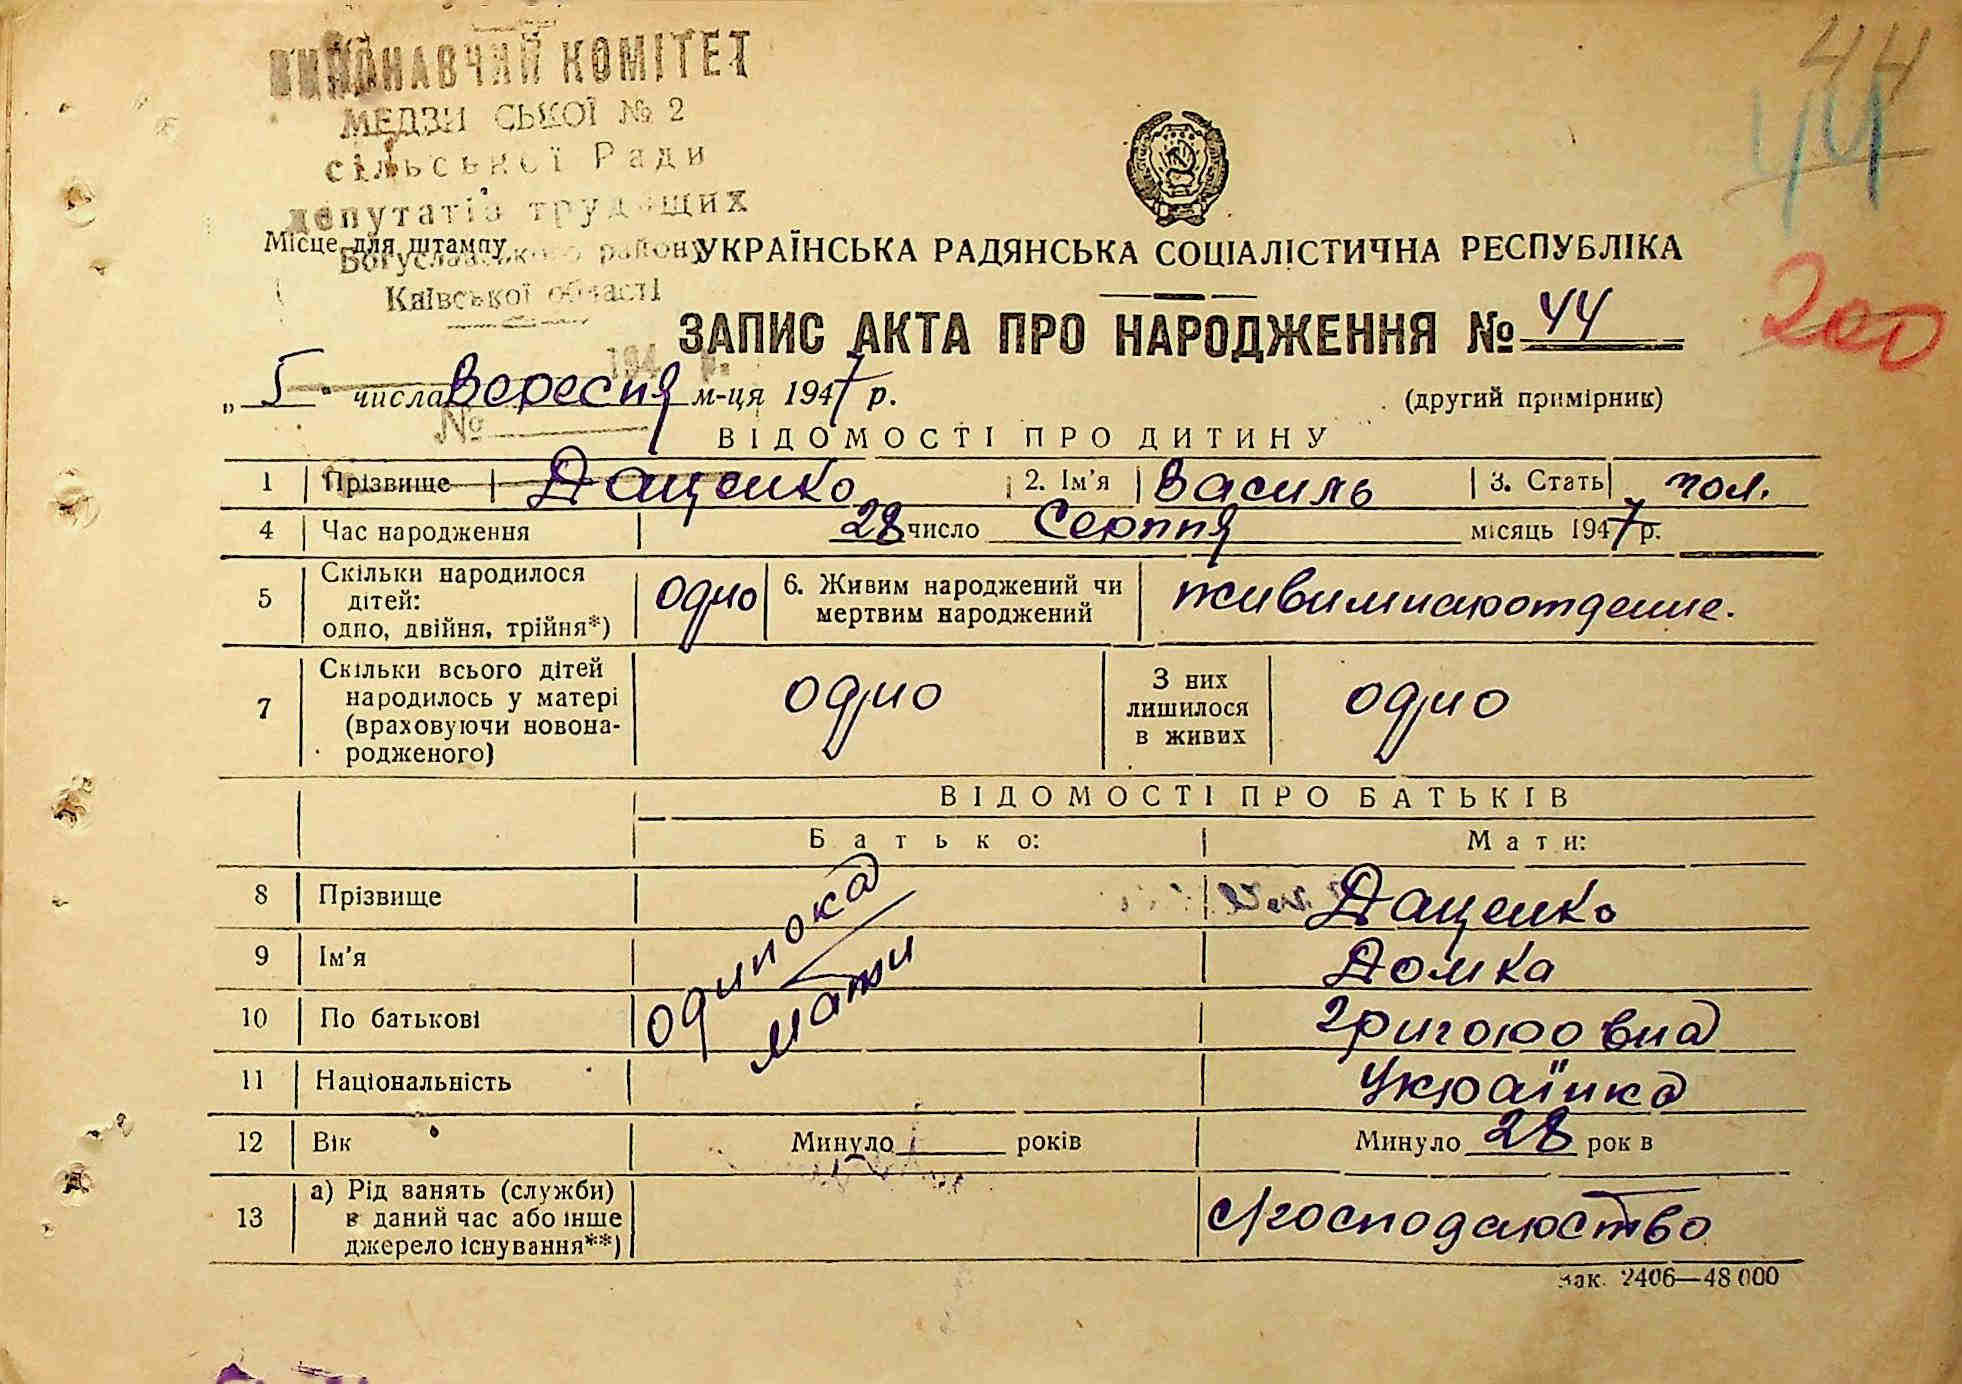 44
ВИКОНАВЧИЙ КОМІТЕТ
44
МЕДВИ СЬКОЇ № 2
сільської Ради
депутатів трудящих
Місце для штампу
Богуславського району
УКРАЇНСЬКА РАДЯНСЬКА СОЦІАЛІСТИЧНА РЕСПУБЛІКА
Київської області
200
ЗАПИС АКТА ПРО НАРОДЖЕННЯ № 44
194 р.
„ 5 " числа Вересня м-ця 1947 р. (другий примірник)
№
ВІДОМОСТІ ПРО ДИТИНУ
1 Прізвище Даценко 2. Ім'я Василь 3. Стать чол.
4 Час народження 28 число Серпня місяць 1947 р.
5 Скільки народилося дітей: одно, двійня, трійня*) одно 6. Живим народжений чи мертвим народжений
7 Скільки всього дітей народилось у матері (враховуючи новонародженого) одно З них лишилося в живих одно
ВІДОМОСТІ ПРО БАТЬКІВ
Батько: Мати:
8 Прізвище Даценко
9 Ім'я Домка
одинока мати
10 По батькові Григоровна
11 Національність Українка
12 Вік Минуло років Минуло 28 рок в
13 а) Рід занять (служби) в даний час або інше джерело існування**) с/господарство
Зак. 2406—48 000